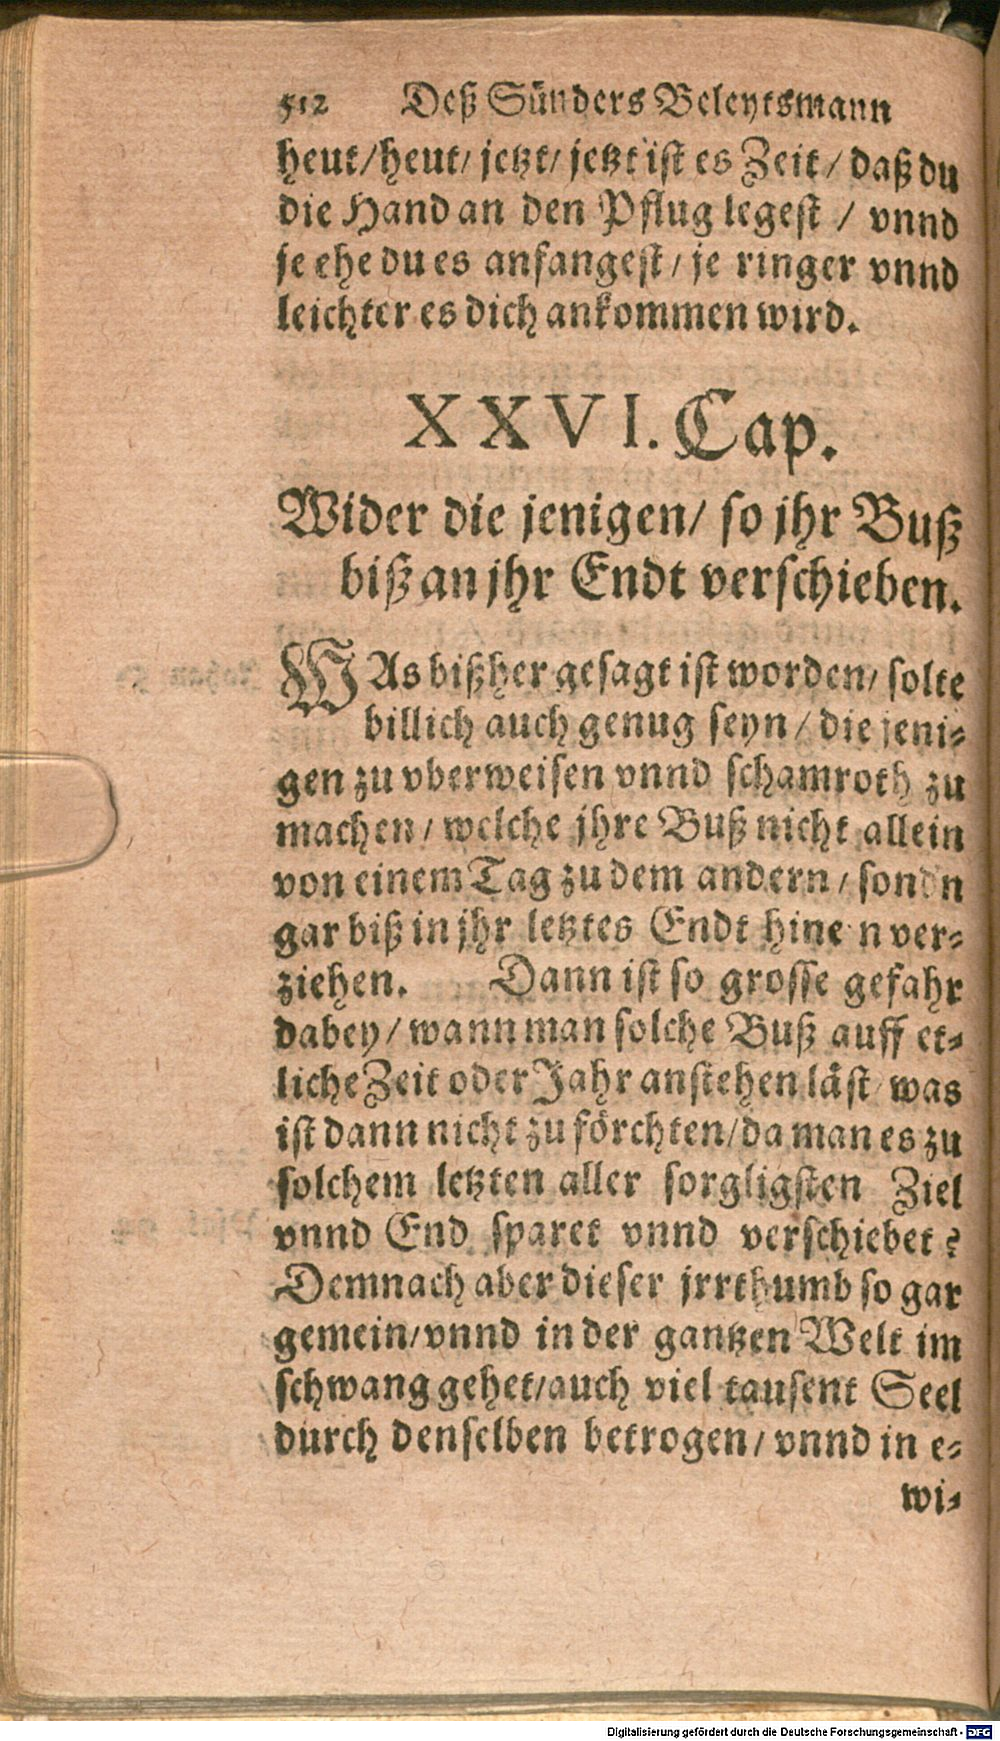 512 Deß Sünders Beleytsmann
heut/heut/ jetzt/ jetzt ist es Zeit/ daß du
die Hand an den Pflug legest / vnnd
je ehe du es anfangest/ je ringer vnnd
leichter es dich ankommen wird.
XXVI. Cap.
Wider die jenigen/ so jhr Buß
biß an jhr Endt verschieben.
WAs bißher gesagt ist worden/ solte
billich auch genug seyn/ die jeni-
gen zu vberweisen vnnd schamroth zu
machen/ welche jhre Buß nicht allein
von einem Tag zu dem andern/ sondn
gar biß in jhr letztes Endt hinein ver-
ziehen. Dann ist so grosse gefahr
dabey/ wann man solche Buß auff et-
liche Zeit oder Jahr anstehen läst/ was
ist dann nicht zu förchten/ da man es zu
solchem letzten aller sorgligsten Ziel
vnnd End sparet vnnd verschiebet?
Demnach aber dieser jrrthumb so gar
gemein/ vnnd in der gantzen Welt im
schwang gehet/ auch viel tausent Seel
durch denselben betrogen/ vnnd in e-
wi-
Digitalisierung gefördert durch die Deutsche Forschungsgemeinschaft - DFG